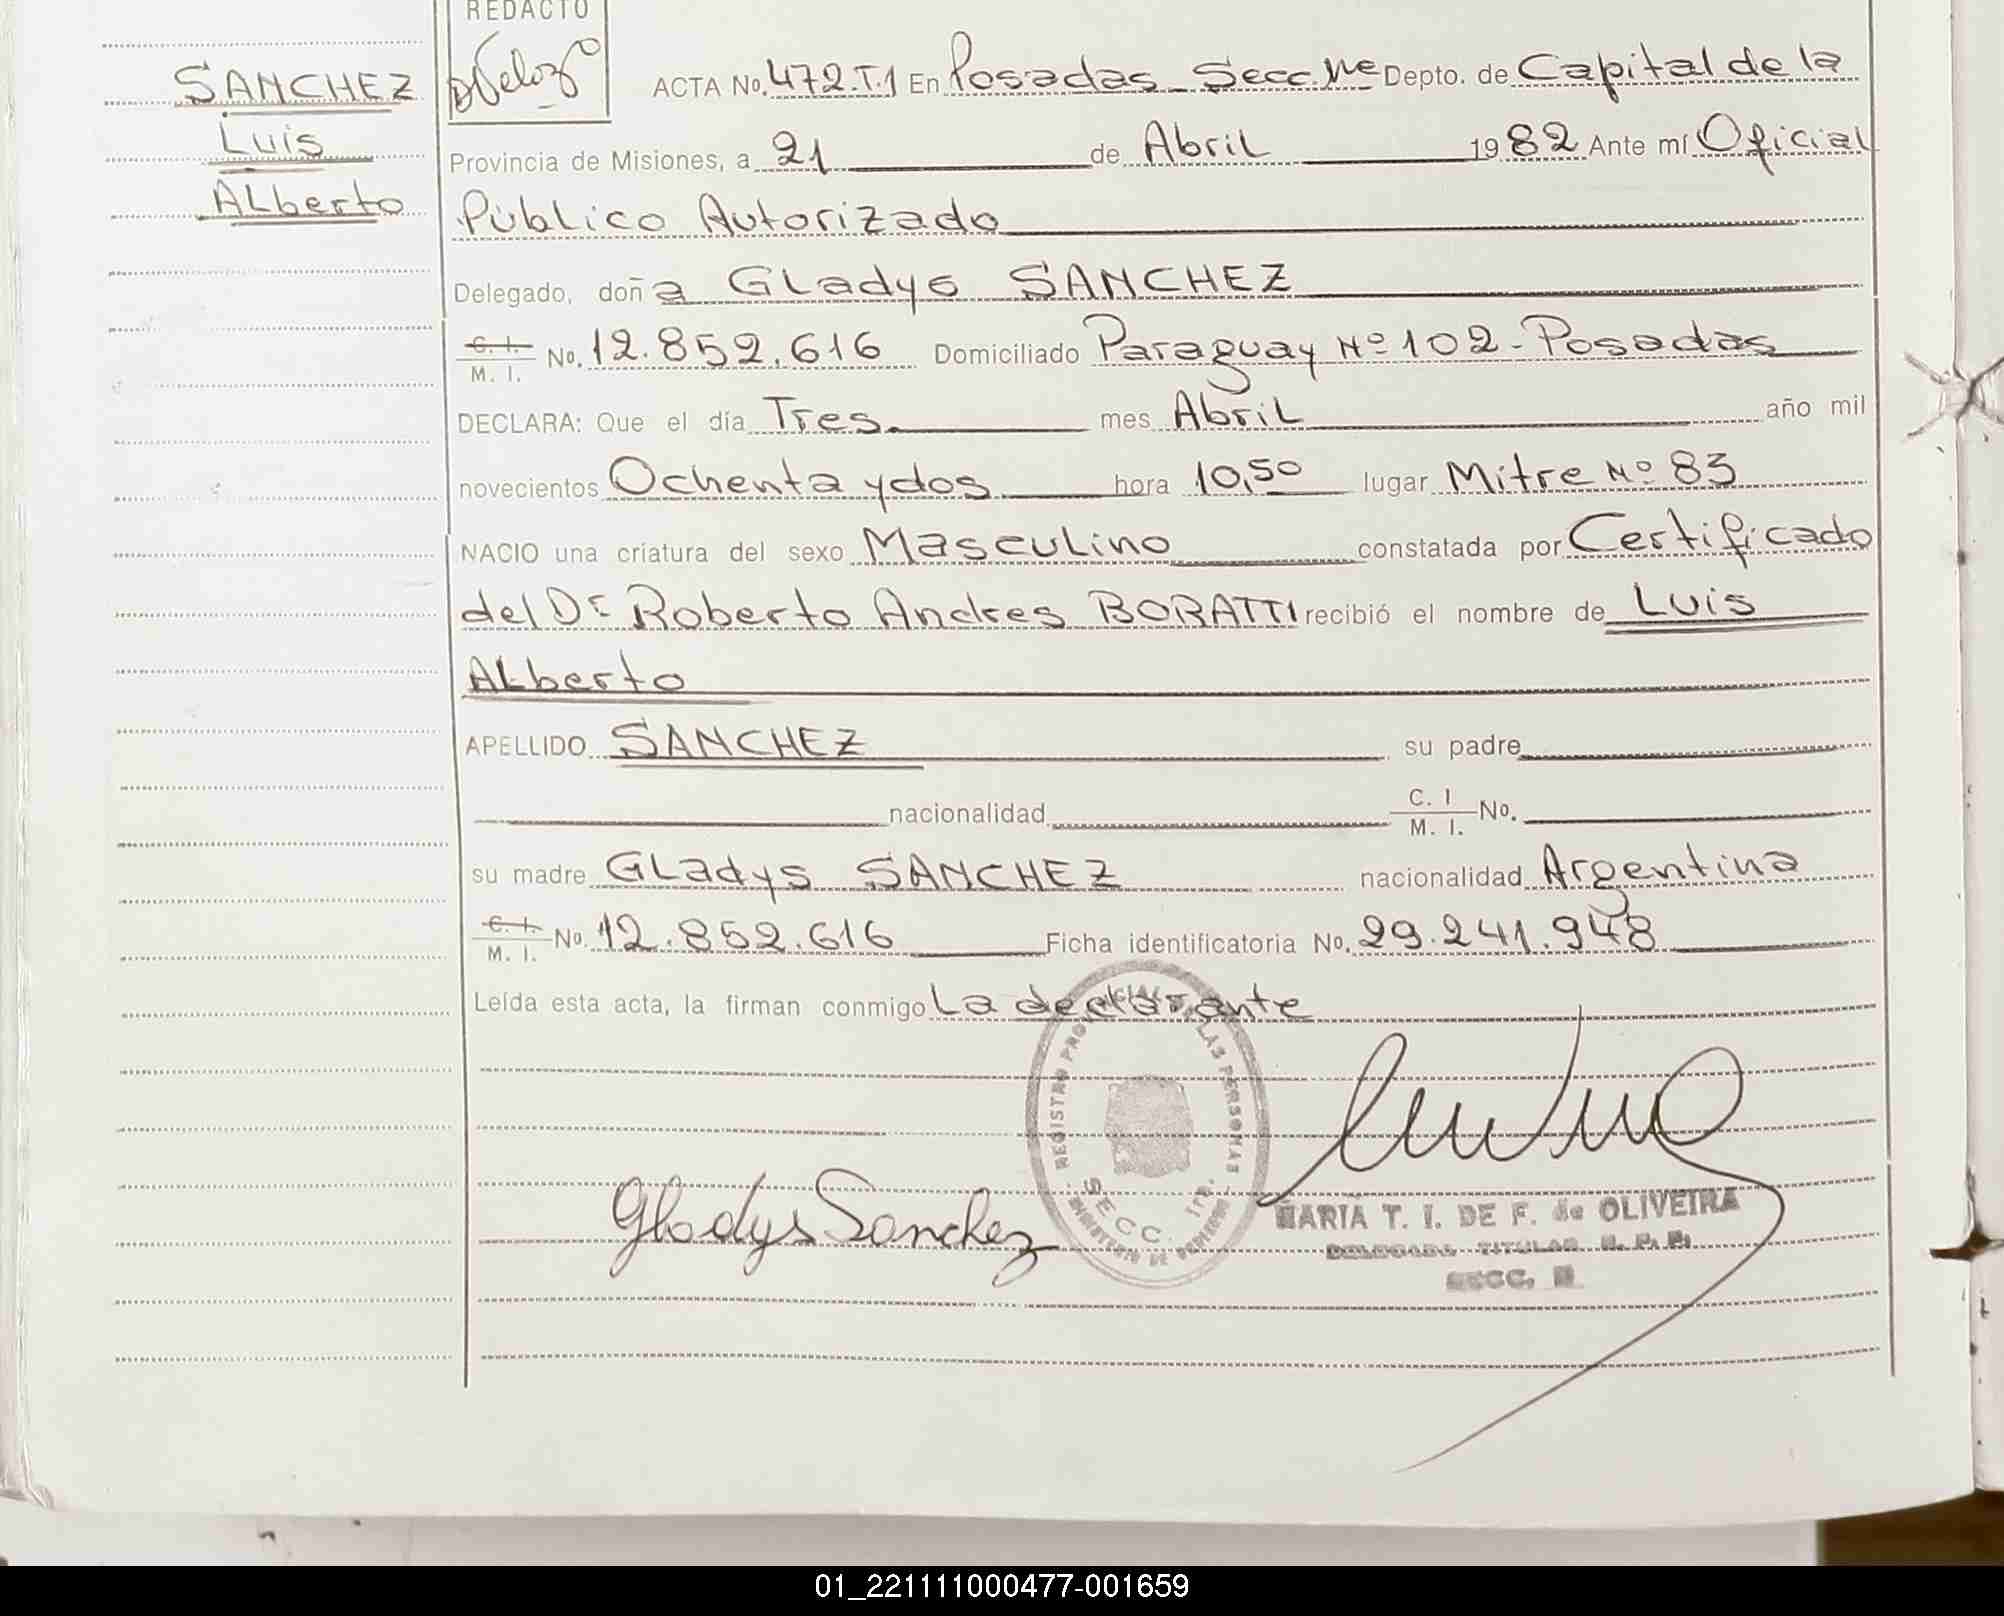 REDACTO
SANCHEZ
Luis
Alberto
ACTA No. 472.T.1 En Posadas Secc. 1ra Depto. de Capital de la
Provincia de Misiones, a 21 de Abril 1982 Ante mí Oficial
Público Autorizado
Delegado, doña Gladys SANCHEZ
C. I. M. I. No. 12.852.616 Domiciliado Paraguay Nº 102 - Posadas
DECLARA: Que el día Tres. mes Abril año mil
novecientos Ochenta y dos hora 10,50 lugar Mitre Nº 83
NACIO una criatura del sexo Masculino constatada por Certificado
del Dr Roberto Andres BORATTI recibió el nombre de Luis
Alberto
APELLIDO SANCHEZ su padre
nacionalidad C. I M. I. No.
su madre Gladys SANCHEZ nacionalidad Argentina
C. I. M. I. No. 12.852.616 Ficha identificatoria No. 29.241.948
Leída esta acta, la firman conmigo La declarante
REGISTRO PROVINCIAL DE LAS PERSONAS
SECC. 1ra.
MINISTERIO DE GOBIERNO
Gladys Sanchez
MARIA T. I. DE F. de OLIVEIRA
DELEGADA TITULAR R. P. P.
SECC.
01_221111000477-001659